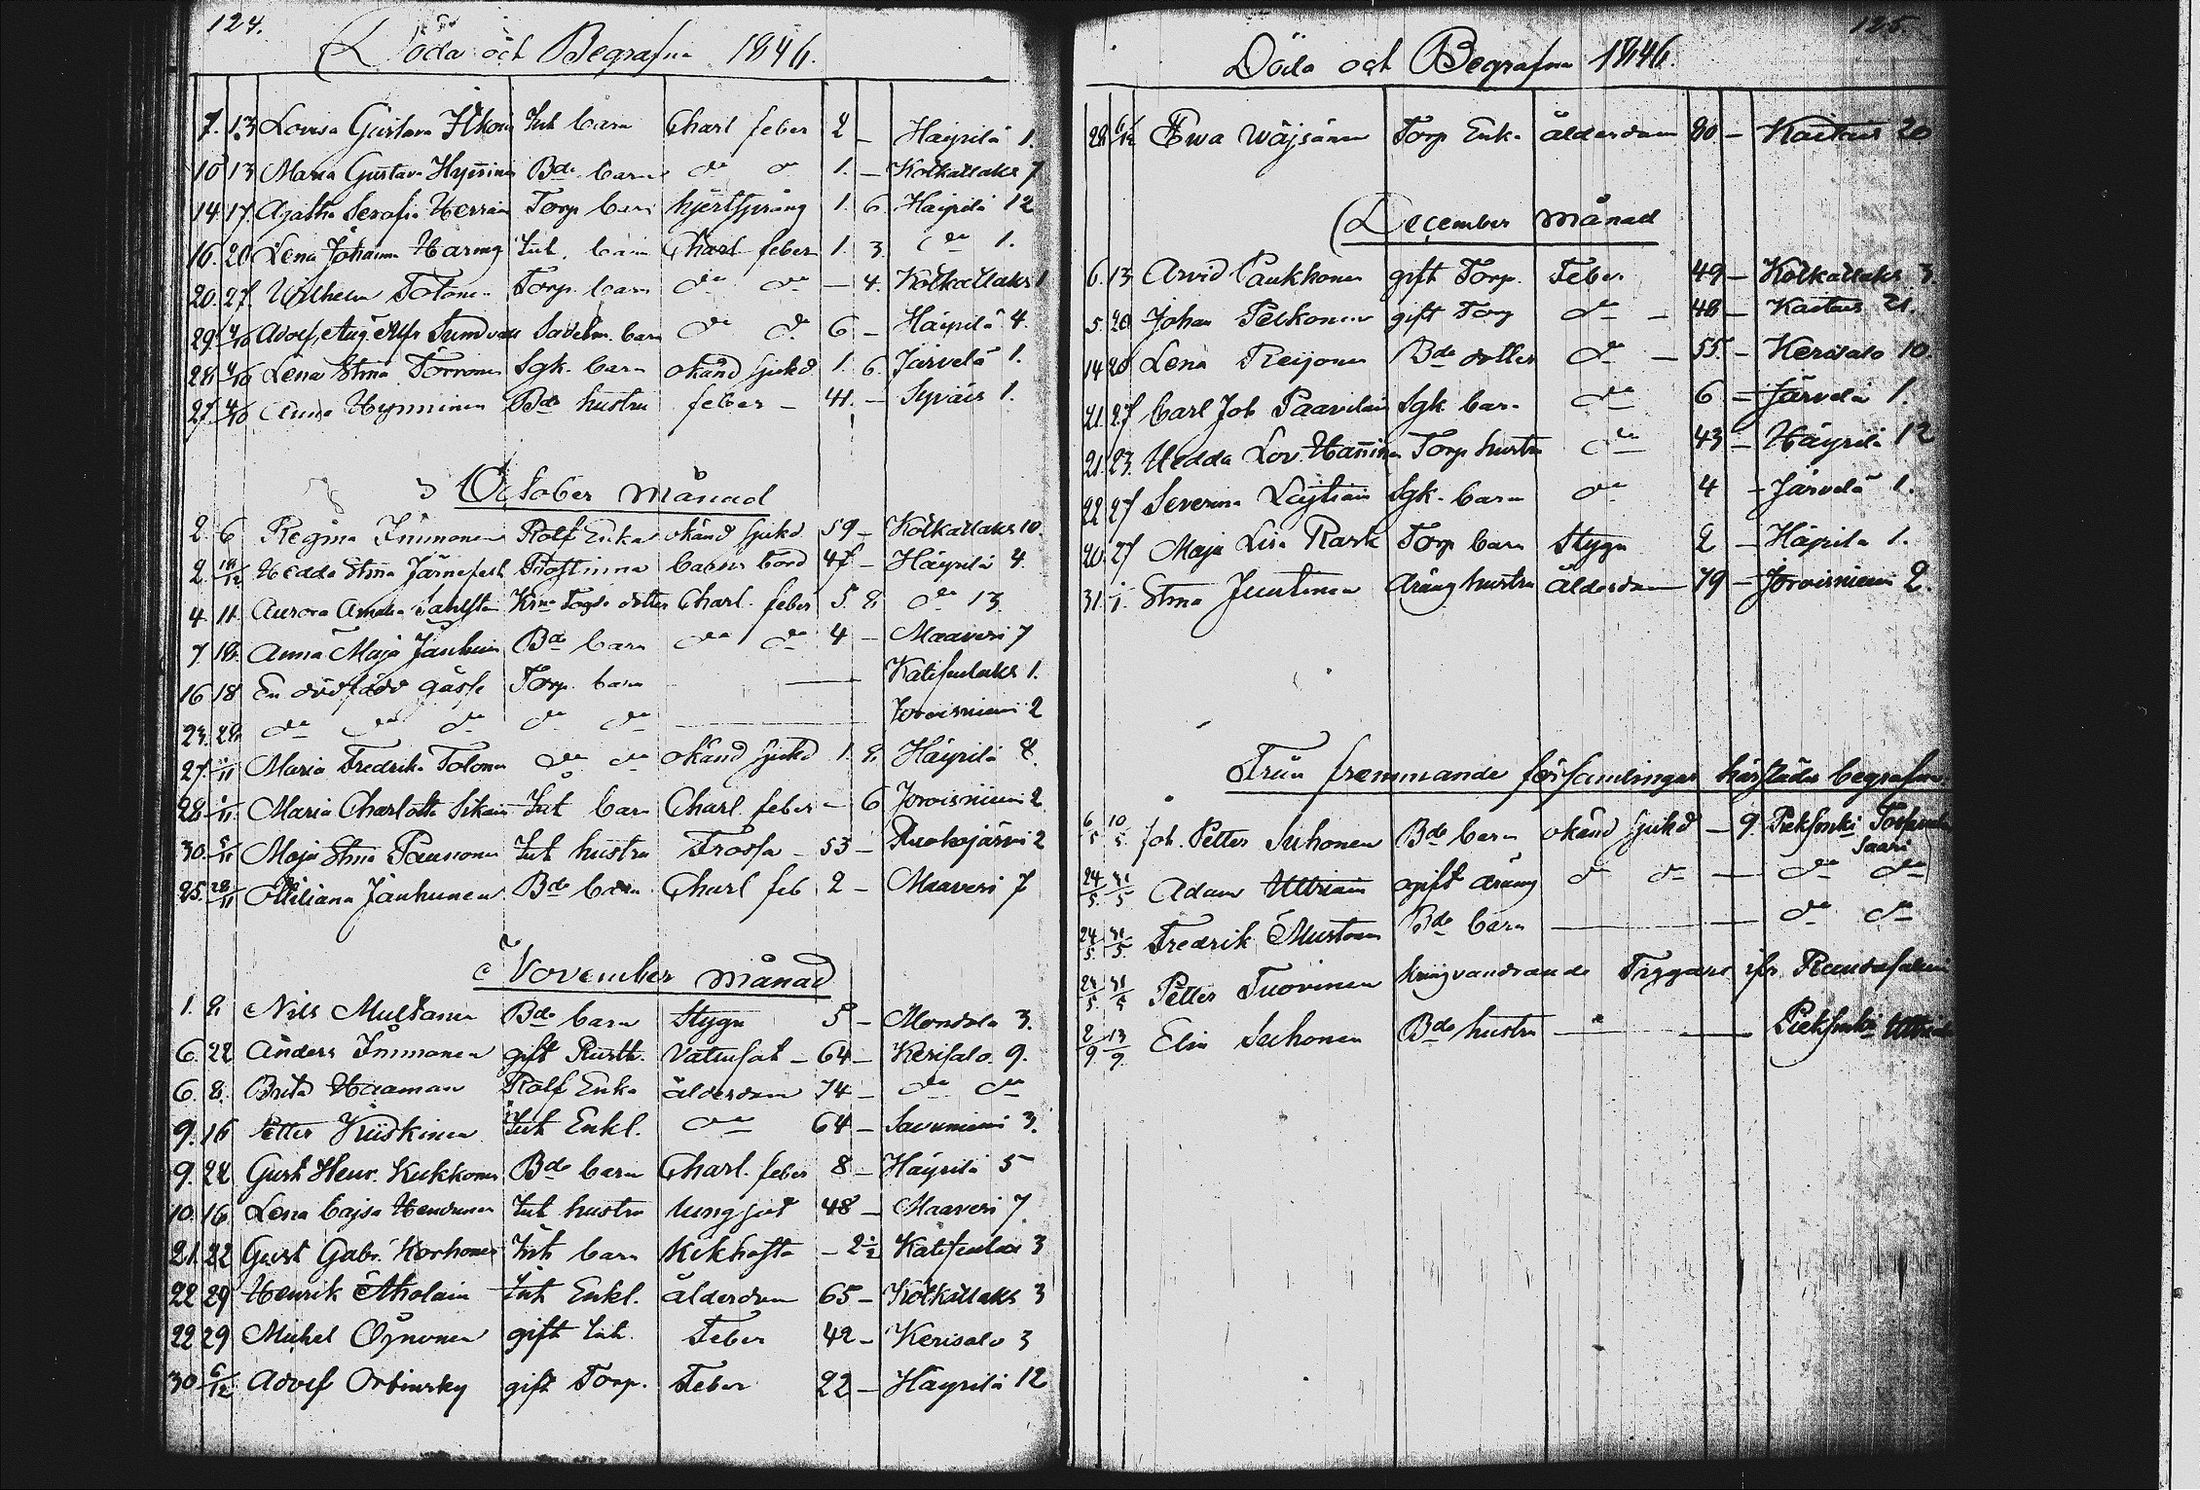 124.
Döda och Begrafne 1846.
7. 13 Lovisa Gustava Ikon Inh barn Charl feber 2 – Häyrilä 1.
10 13 Maria Gustava Hyvinen Bde barn do do 1. – Kolkallaks 7
14. 17. Agatha Serafia Torp barn hjertsprång 1. 6. Häyrilä 12
16. 20 Lena Johanna Inh. barn Charl feber 1. 3. do 1.
20. 27. Wilhelm Tolonen Torp. barn do do – 4. Kolkallaks 1
29. 4/10 Adolf, Aug. Alfr Sundvall barn do do 6 – Häyrilä 4.
28. 4/10 Lena Stina Sgk. barn okänd sjukd 1. 6. Järvelä 1.
27. 4/10 Anna Hynninen Bde hustru feber – 41. – Syväis 1.
October månad
2. 6 Regina Immonen Rolf Enka okänd sjukd 59 – Kolkallaks 10.
2. Hedda Stina Järnefelt Prostinna barns börd 47 – Häyrilä 4.
4. 11. Aurora Amalia dotter Charl. feber 5. 8. do 13.
7 18. Anna Maja Bde barn do do 4 – Maaveri 7
16 18 En dödfödd gosse Torp. barn — Katisenlaks 1.
23. 28. do do do do do — Joroisniemi 2
27. 1/11 Maria Fredrika Tolonen do do okänd sjukd 1. 8. Häyrilä 8.
28 1/11 Maria Charlotta Sikain Inh barn Charl. feber – 6 Joroisniemi 2
30. Maja Stina Paunonen Inh hustru Frossa – 53 – Ruokojärvi 2
25. 28/11 Miliana Jauhunen Bde barn Charl feb 2 – Maaveri 7
November månad
1. 8. Nils Multanen Bde barn Stygn 5 – Montola 3.
6. 22 Anders Immonen gift Rusth. Vattusot – 64 – Kerisalo. 9.
6. 8. Brita Haaman Rolf Enka ålderdom 74 – do do
9. 16 Petter Kiiskinen Inh Enkl. do 64 – Savuniemi 3.
9. 22 Gust Henr. Kukkonen Bde barn Charl. feber 8 – Häyrilä 5
10. 16. Lena Cajsa Inh hustru lungsot 48 – Maaveri 7
21. 22 Gust Gabr. Korhonen Inh barn Kikhosta – 2 1/2 Katisenlax 3
22 29 Henrik Aholain Inh Enkl. ålderdom 65 – Kolkallaks 3
22 29 Michel Oynonen gift Inh. Feber 42 – Kerisalo 3
30 6/12 Adolf Orbinsky gift Torp. Feber 22 – Häyrilä 12
125.
Döda och Begrafne 1846.
28 6/12 Ewa Wäisänen Torp Enka ålderdom 80 – Kaitais 20
December månad
6. 13 Arvid Paukkonen gift Torp. Feber 49 – Kolkallaks 3.
5. 20 Johan Pelkonen gift Torp do – 48 – Kaitais 21.
14 20 Lena Reijonen Bde dotter do – 55. – Kerisalo 10.
21. 27 Carl Joh Paavilain Sgk barn do 6 – Järvelä 1.
21. 23. Hedda Lov. Torp hustru do 43 – Häyrilä 12
22 27 Severina Sgk. barn do 4 – Järvelä 1.
20. 27 Maja Lisa Rask Torp barn Stygn 2 – Häyrilä 1.
31. Stina Juutinen dräng hustru ålderdom 79 – Joroisniemi 2.
Från fremmande församlingar härstädes begrafne.
6/5 10/5 Joh. Petter Suhonen Bde barn okänd sjukd – 9. Pieksmki
saari
24/5 31/5 Adam gift dräng do do — do do
24/5 31/5 Fredrik Bde barn — — do do
24/5 31/5 Petter Tuovinen kringvandrande Tiggare ifr. Randasalmi
2/9 13/9 Elin Suhonen Bde hustru — — Pieksmki